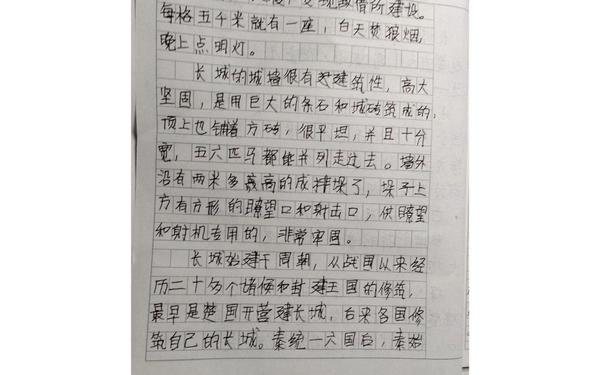 敌情所建设。
每格五千米就有一座，白天焚狼烟，
晚上点明灯。
长城的城墙很有建筑性，高大
坚固，是用巨大的条石和城砖筑成的，
顶上也铺着方砖，很平坦，并且十分
宽，五六匹马都能并列走过去。墙外
沿有两米多高的成排垛了，垛子上
方有方形的瞭望口和射击口，供瞭望
和射机专用的，非常牢固。
长城始建于周朝，从战国以来经
历二十多个诸候和封建王国的修筑，
最早是楚国开营建长城，后来各国修
筑自己的长城。秦统一六国后，秦始